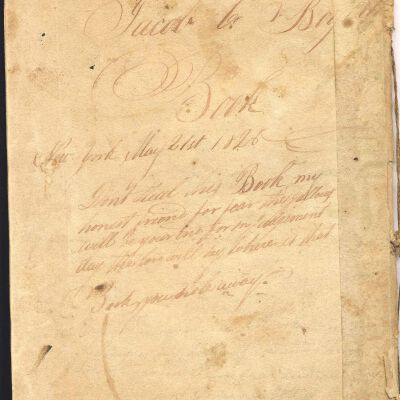 Jacob
Book
New York May 21st 1826
Don't steal this Book my
honest friend for fear the gallows
will be your end for on judgement
day the Lord will say where is that
Book you stole away